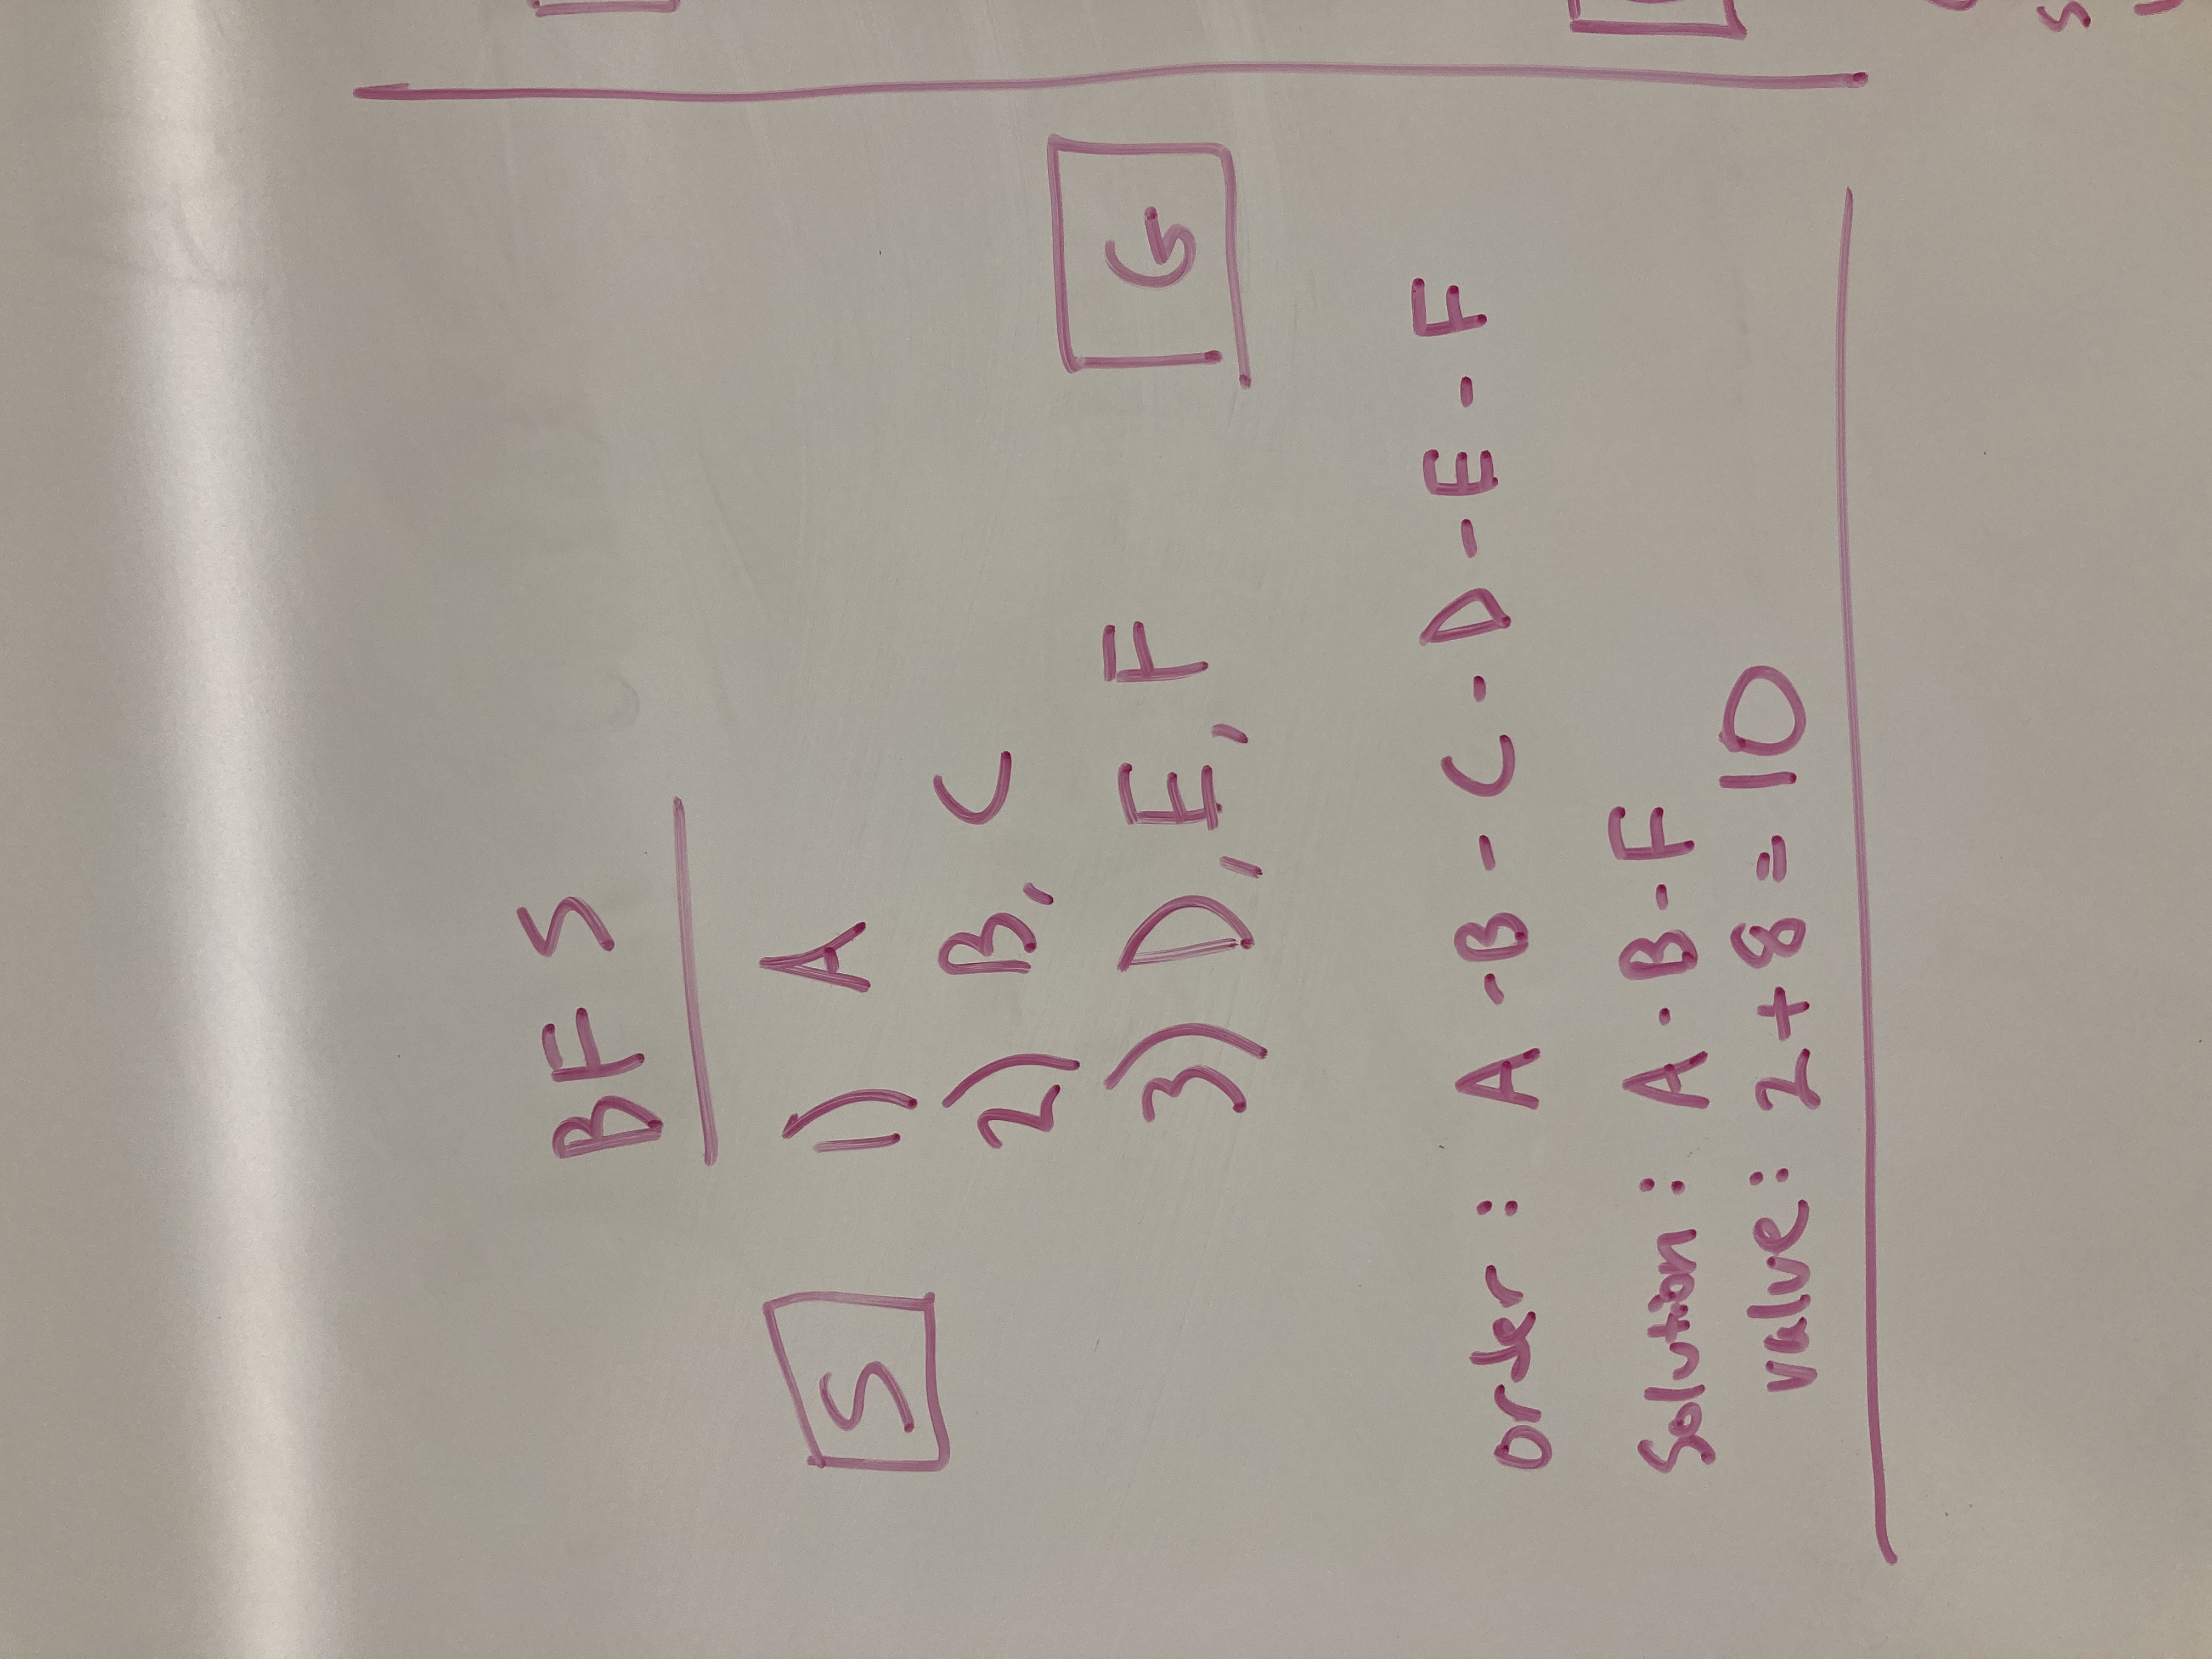 BFS
S 1) A
2) B, C
3) D, E, F G
order: A-B-C-D-E-F
Solution: A-B-F
value: 2+8=10